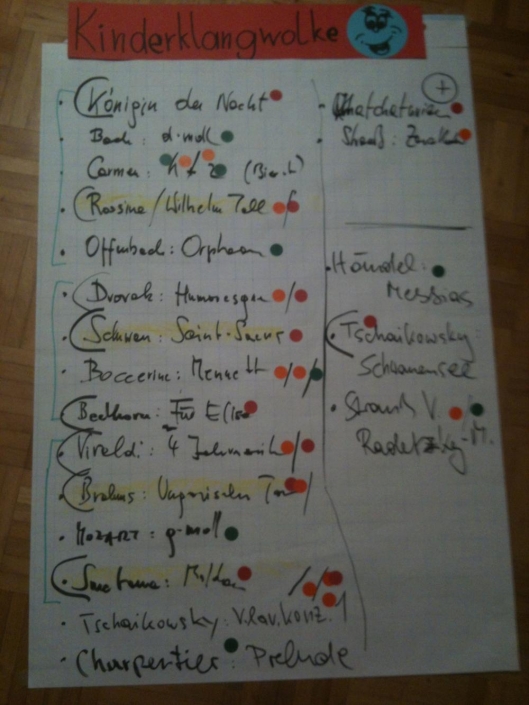 Kinderklangwolke
Königin der Nacht
Bach: d-moll
Carmen:
Rossini / Wilhelm Tell
Offenbach: Orpheus
Dvorak: Humoresque
Schwan: Saint-Saens
Boccerini: Menuett
Beethoven: Für Elise
Vivaldi: 4 Jahreszeiten
Brahms: Ungarischer Tanz
MOZART: g-moll
Smetana: Moldau
Tschaikowsky: Klav.konz. 1
Charpentier: Prelude
+
Khatchaturian
Händel:
Messias
Tschaikowsky:
Schwanensee
Strauß V.
Radetzky-M.